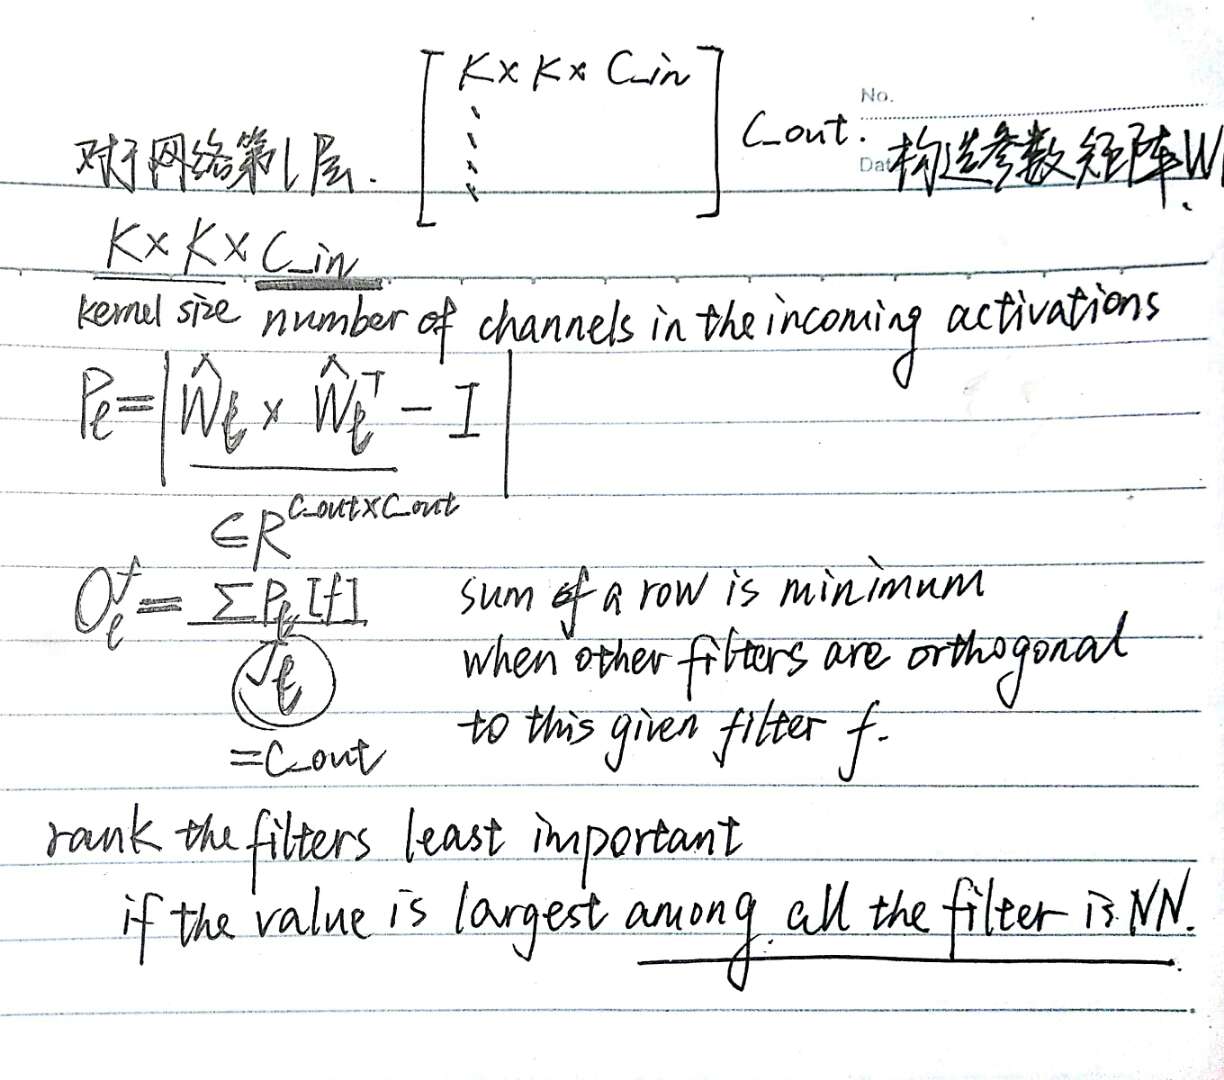 No.
Date
对于网络第l层. [K×K×C_in] C_out. 构造参数矩阵Wl.
K×K×C_in
kernel size number of channels in the incoming activations
Pℓ=|Ŵℓ × Ŵℓ^T - I|
∈R^C_out×C_out
Oℓ^f = ΣPℓ[f] / Jℓ
=C_out
sum of a row is minimum
when other filters are orthogonal
to this given filter f.
rank the filters least important
if the value is largest among all the filter is NN.